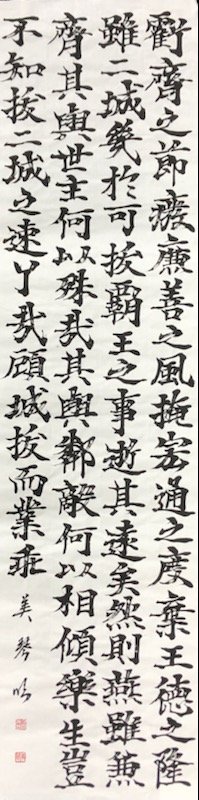 虧齊之節廢廉善之風掩宏通之度棄王德之隆
雖二城幾於可拔霸王之事逝其遠矣然則燕雖兼
齊其與世主何以殊哉其與鄰敵何以相傾樂生豈
不知拔二城之速了哉顧城拔而業乖 美琴臨